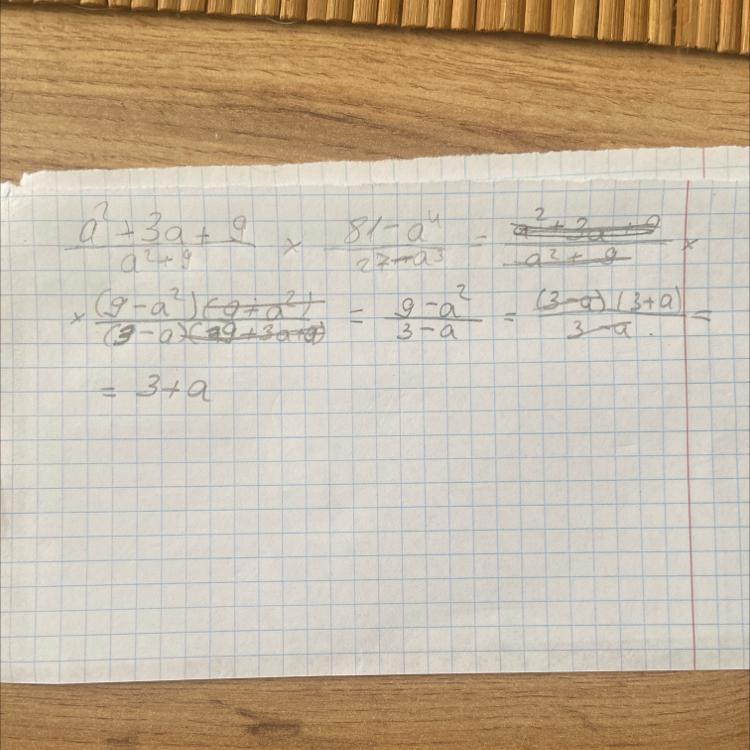 (a² + 3a + 9)/(a² + 9) × (81 - a⁴)/(27 - a³) = (a² + 3a + 9)/(a² + 9) ×
× (9 - a²)(9 + a²)/(3 - a)(9 + 3a + a²) = (9 - a²)/(3 - a) = (3 - a)(3 + a)/(3 - a) =
= 3 + a